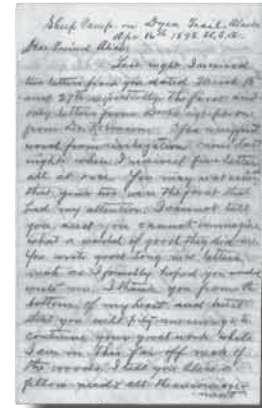 Sheep Camp on Dyea Trail, Alaska
Apr. 16th 1898. U.S.A.
Dear Friend Alice:
Last night I received
two letters from you dated March 18
and 27th respectively. The first and
only letters from
from The next
word from civilization came last
night when I received five letters
all at once. You may rest
that yours were the first that
had my attention. I cannot tell
you and you cannot immagine
what a world of good they did me.
You write good long nice letters,
such as I formally hoped you would
write me. I thank you from the
bottom of my heart and trust
that you will
continue your good work while
I am in this far off neck of
the woods. I tell you Alice a
fellow needs all the
ment